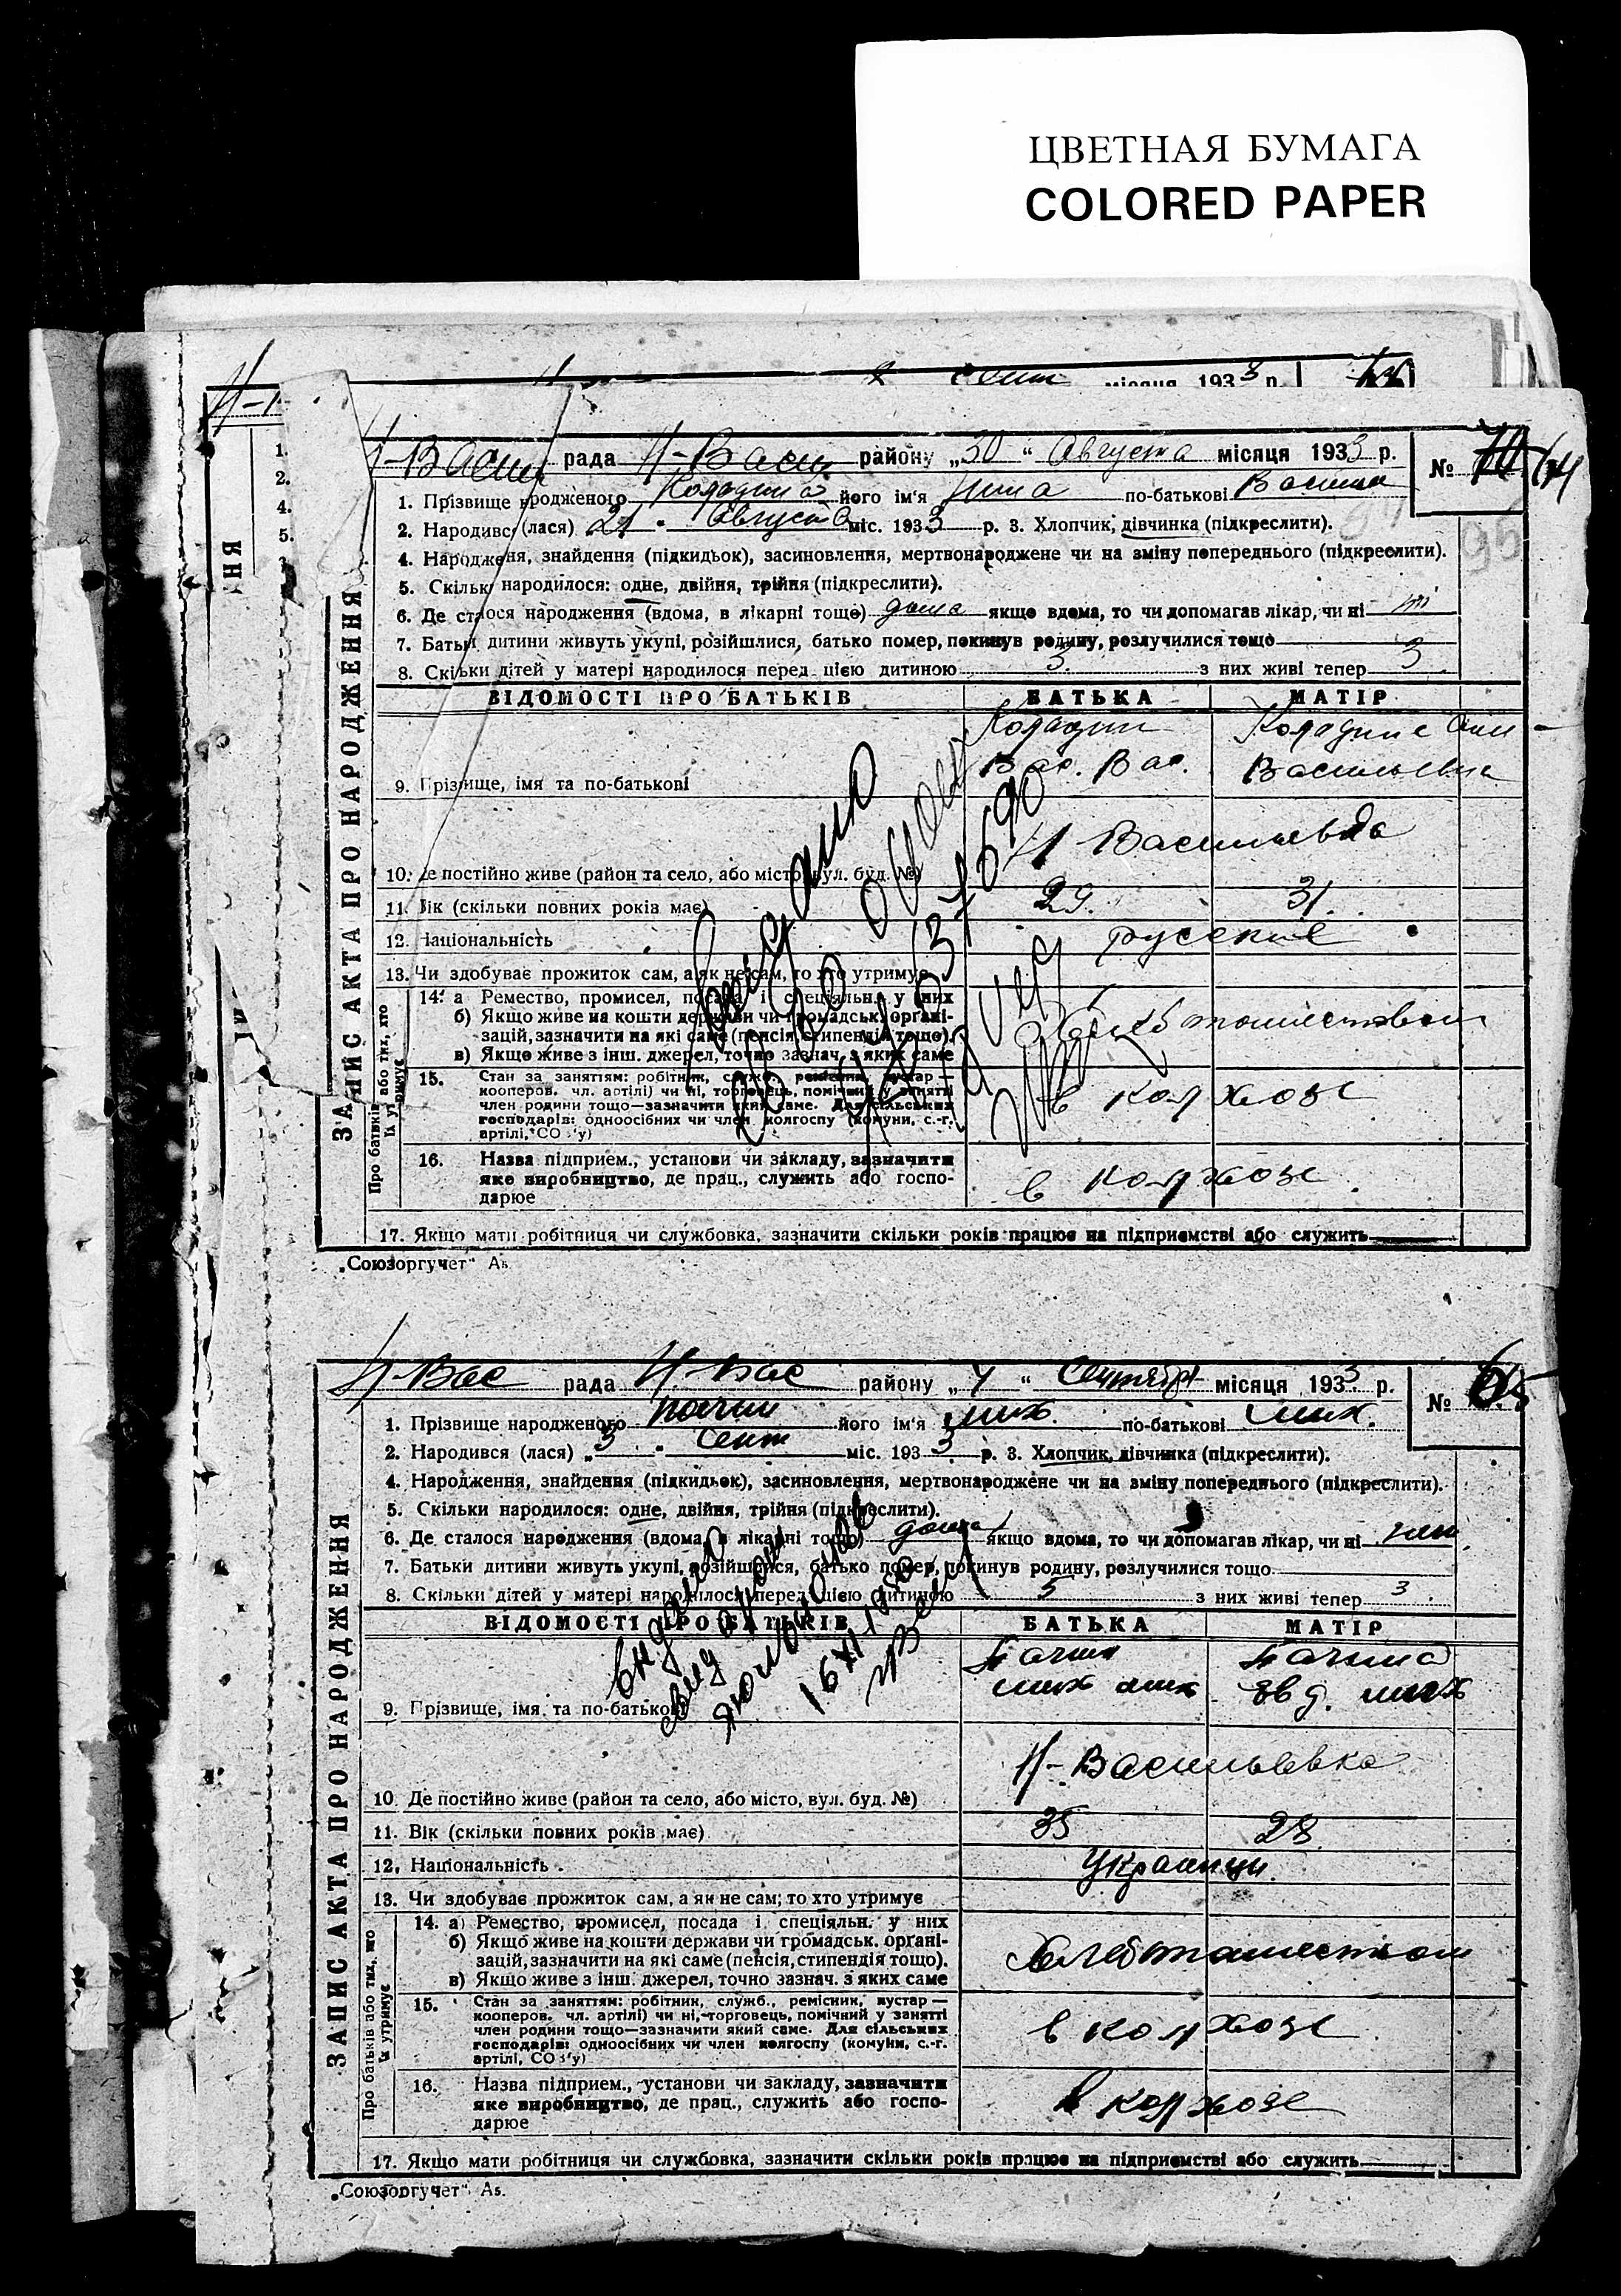 ЦВЕТНАЯ БУМАГА
COLORED PAPER
місяця 1933 р.
Н-Васил рада Н-Васил району „30“ Августа місяця 1933 р. № 64
1. Прізвище народженого його ім'я Нина по-батькові Васил
2. Народився (лася) 21 " Августа міс. 1933 р. 3. Хлопчик, дівчинка (підкреслити).
4. Народження, знайдення (підкидьок), засиновлення, мертвонароджене чи на зміну попереднього (підкреслити).
5. Скільки народилося: одне, двійня, трійня (підкреслити).
6. Де сталося народження (вдома, в лікарні тощо) дома якщо вдома, то чи допомагав лікар, чи ні ні
7. Батьки дитини живуть укупі, розійшлися, батько помер, покинув родину, розлучилися тощо
8. Скільки дітей у матері народилося перед цією дитиною 3 з них живі тепер 3
ЗАПИС АКТА ПРО НАРОДЖЕННЯ
ВІДОМОСТІ ПРО БАТЬКІВ БАТЬКА МАТІР
Вас. Вас. Васильевна
9. Прізвище, імя та по-батькові
Н Васильевка
10. Де постійно живе (район та село, або місто, вул. буд. №)
11. Вік (скільки повних років має) 29. 31.
12. Національність русские
13. Чи здобуває прожиток сам, а як не сам, то хто утримує
Про батьків або тих, хто їх утримує
14. а Ремество, промисел, посада і спеціяльн. у них
б) Якщо живе на кошти держави чи громадськ. органі-
зацій, зазначити на які саме (пенсія, стипендія тощо).
в) Якщо живе з інш. джерел, точно зазнач. з яких саме
15. Стан за заняттям: робітник, служб., ремісник, кустар —
кооперов. чл. артілі) чи ні, торговець, помічний у занятті
член родини тощо—зазначити який саме. Для сільських
господарів: одноосібних чи член колгоспу (комуни, с.-г.
артілі, СОЗ'у)
в колхозе
16. Назва підприєм., установи чи закладу, зазначити
яке виробництво, де прац., служить або госпо-
дарює
в колхозе
17. Якщо мати робітниця чи службовка, зазначити скільки років працює на підприємстві або служить
„Союзоргучет“ А5.
Н-Вас рада Н-Вас району „4“ Сентября місяця 1933 р. № 65
1. Прізвище народженого його ім'я Мих. по-батькові Мих.
2. Народився (лася) „3 " Сент міс. 1933 р. 3. Хлопчик, дівчинка (підкреслити).
4. Народження, знайдення (підкидьок), засиновлення, мертвонароджене чи на зміну попереднього (підкреслити).
5. Скільки народилося: одне, двійня, трійня (підкреслити).
6. Де сталося народження (вдома, в лікарні тощо) дома якщо вдома, то чи допомагав лікар, чи ні
7. Батьки дитини живуть укупі, розійшлися, батько помер, покинув родину, розлучилися тощо
8. Скільки дітей у матері народилося перед цією дитиною 5 з них живі тепер 3
ЗАПИС АКТА ПРО НАРОДЖЕННЯ
ВІДОМОСТІ ПРО БАТЬКІВ БАТЬКА МАТІР
9. Прізвище, імя та по-батькові
Н-Васильевка
10. Де постійно живе (район та село, або місто, вул. буд. №)
11. Вік (скільки повних років має) 35 28
12. Національність Украинцы
13. Чи здобуває прожиток сам, а як не сам; то хто утримує
Про батьків або тих, що їх утримує
14. а) Ремество, промисел, посада і спеціяльн. у них
б) Якщо живе на кошти держави чи громадськ. органі-
зацій, зазначити на які саме (пенсія, стипендія тощо).
в) Якщо живе з інш. джерел, точно зазнач. з яких саме
15. Стан за заняттям: робітник, служб., ремісник, кустар —
кооперов. чл. артілі) чи ні, торговець, помічний у занятті
член родини тощо—зазначити який саме. Для сільських
господарів: одноосібних чи член колгоспу (комуни, с.-г.
артілі, СОЗ'у)
в колхозе
16. Назва підприєм., установи чи закладу, зазначити
яке виробництво, де прац., служить або госпо-
дарює
в колхозе
17. Якщо мати робітниця чи службовка, зазначити скільки років працює на підприємстві або служить
„Союзоргучет“ А5.